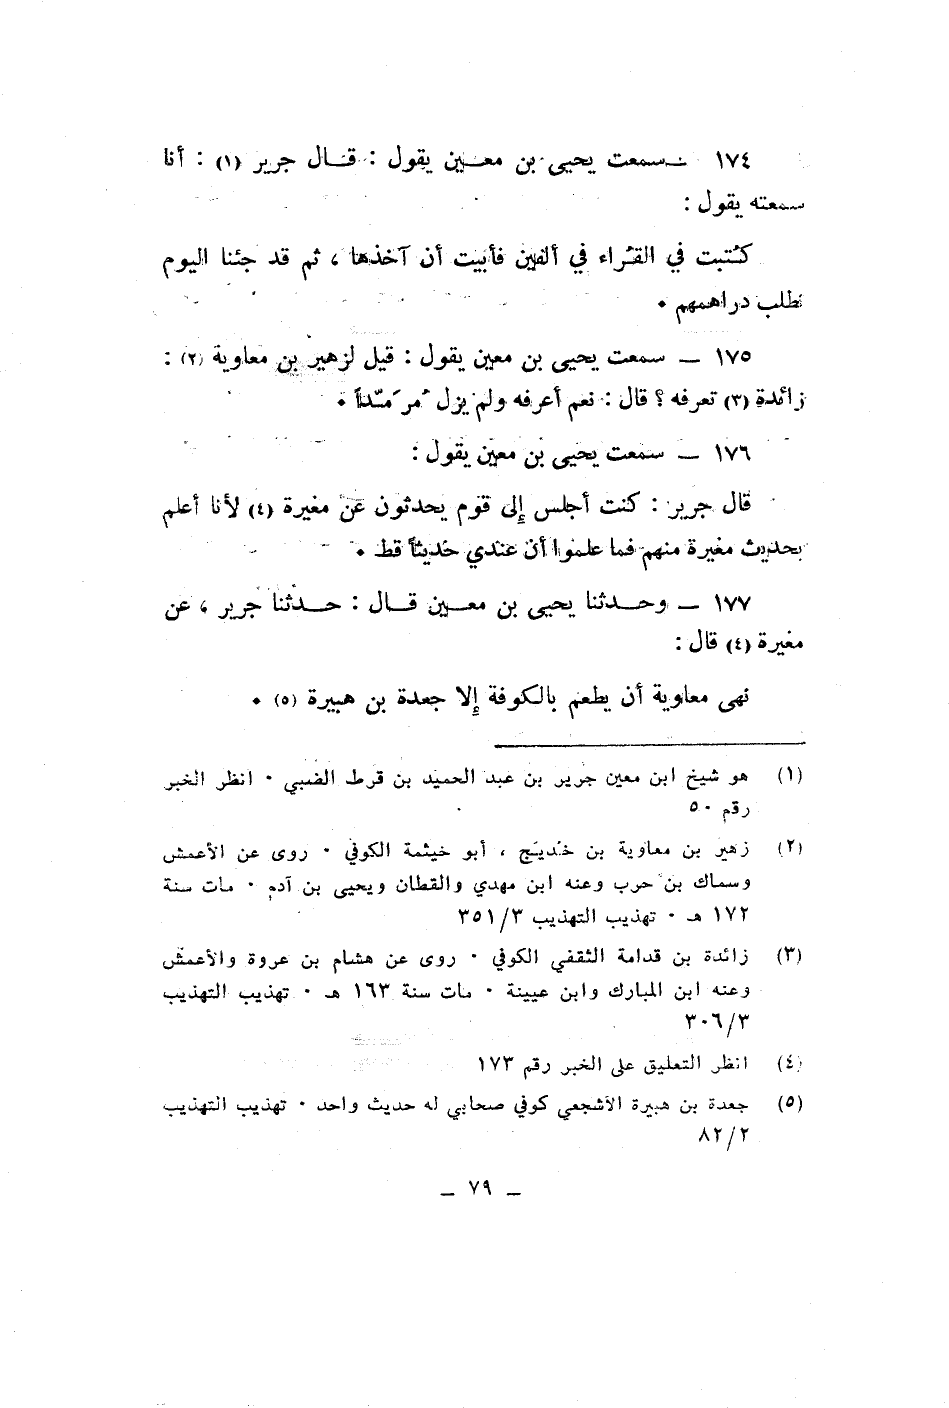 ١٧٤ – سمعت يحيى بن معين يقول : قال جرير (١) : أنا
سمعته يقول :
كُتبت في القُراء في ألفين فأبيت أن آخذها ، ثم قد جئنا اليوم
نطلب دراهمهم ٠
١٧٥ – سمعت يحيى بن معين يقول : قيل لزهير بن معاوية (٢) :
زائدة (٣) تعرفه ؟ قال : نعم أعرفه ولم يزل
١٧٦ – سمعت يحيى بن معين يقول :
قال جرير : كنت أجلس إلى قوم يحدثون عن مغيرة (٤) لأنا أعلم
بحديث مغيرة منهم فما علموا أن عندي حديثاً قط ٠
١٧٧ – وحدثنا يحيى بن معين قال : حدثنا جرير ، عن
مغيرة (٤) قال :
نهى معاوية أن يطعم بالكوفة إلا جعدة بن هبيرة (٥) ٠
(١) هو شيخ ابن معين جرير بن عبد الحميد بن قرط الضبي ٠ انظر الخبر
رقم ٥٠
(٢) زهير بن معاوية بن خديج ، أبو خيثمة الكوفي ٠ روى عن الأعمش
وسماك بن حرب وعنه ابن مهدي والقطان ويحيى بن آدم ٠ مات سنة
١٧٢ هـ ٠ تهذيب التهذيب ٣٥١/٣
(٣) زائدة بن قدامة الثقفي الكوفي ٠ روى عن هشام بن عروة والأعمش
وعنه ابن المبارك وابن عيينة ٠ مات سنة ١٦٣ هـ ٠ تهذيب التهذيب
٣٠٦/٣
(٤) انظر التعليق على الخبر رقم ١٧٣
(٥) جعدة بن هبيرة الأشجعي كوفي صحابي له حديث واحد ٠ تهذيب التهذيب
٨٢/٢
– ٧٩ –